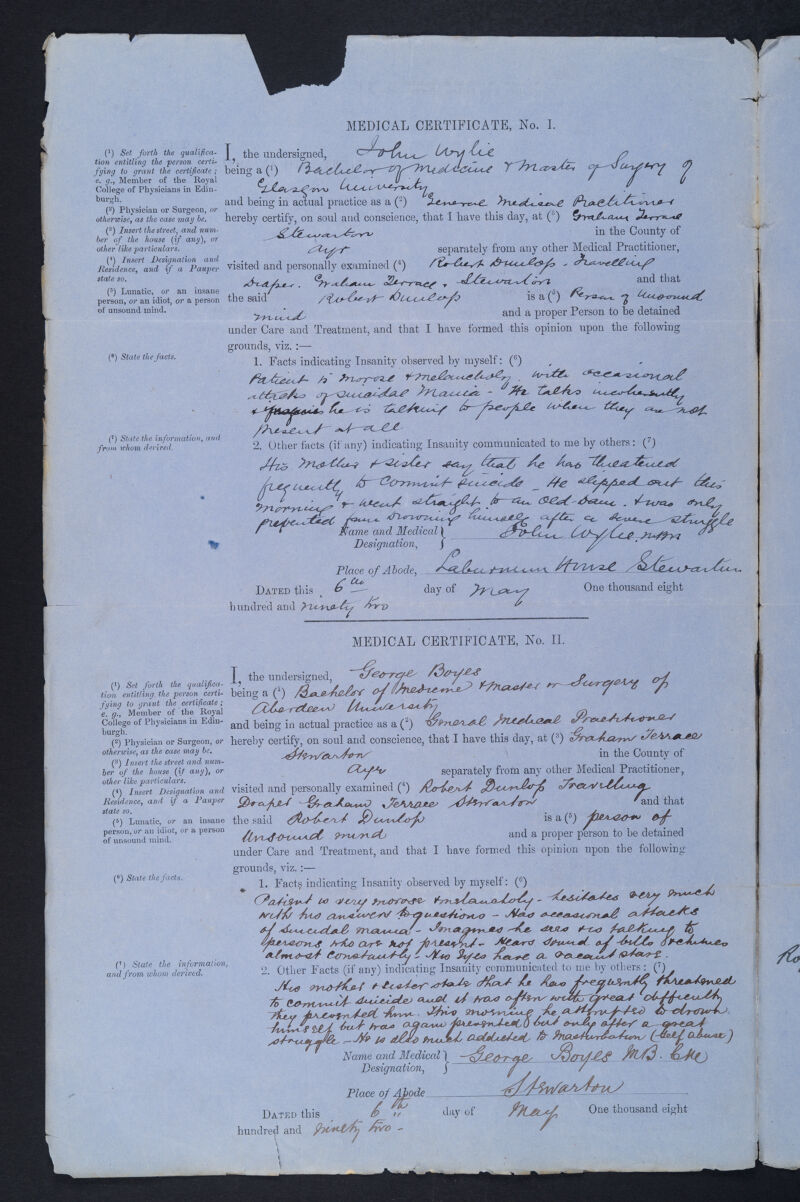 MEDICAL CERTIFICATE, No. I.
(¹) Set forth the qualifica-
tion entitling the person certi-
fying to grant the certificate;
e. g., Member of the Royal
College of Physicians in Edin-
burgh.
(²) Physician or Surgeon, or
otherwise, as the case may be.
(³) Insert the street, and num-
ber of the house (if any), or
other like particulars.
(⁴) Insert Designation and
Residence, and if a Pauper
state so.
(⁵) Lunatic, or an insane
person, or an idiot, or a person
of unsound mind.
(⁶) State the facts.
(⁷) State the information, and
from whom derived.
I, the undersigned, John Wylie
being a (¹) Bachelor of Medicine & Master of Surgery of
Glasgow University
and being in actual practice as a (²) General Medical Practitioner
hereby certify, on soul and conscience, that I have this day, at (³) Graham Terrace
Stewarton in the County of
Ayr separately from any other Medical Practitioner,
visited and personally examined (⁴) Robert Dunlop - Travelling
Draper. Graham Terrace, Stewarton and that
the said Robert Dunlop is a (⁵) Person of Unsound
mind and a proper Person to be detained
under Care and Treatment, and that I have formed this opinion upon the following
grounds, viz. :—
1. Facts indicating Insanity observed by myself: (⁶)
Patient is morose & melancholy with occasional
attacks of suicidal Mania - He talks incoherently
& he is talking to people when they are not
present at all
2. Other facts (if any) indicating Insanity communicated to me by others: (⁷)
His Mother & sister say that he has threatened
frequently to commit suicide - He slipped out this
morning & went straight to an old dam. & was only
prevented from drowning himself after a severe struggle
Name and Medical Designation, } John Wylie, M.B.
Place of Abode, Laburnum House Stewarton
DATED this 6th day of May One thousand eight
hundred and ninety two
MEDICAL CERTIFICATE, No. II.
(¹) Set forth the qualifica-
tion entitling the person certi-
fying to grant the certificate;
e. g., Member of the Royal
College of Physicians in Edin-
burgh.
(²) Physician or Surgeon, or
otherwise, as the case may be.
(³) Insert the street and num-
ber of the house (if any), or
other like particulars.
(⁴) Insert Designation and
Residence, and if a Pauper
state so.
(⁵) Lunatic, or an insane
person, or an idiot, or a person
of unsound mind.
(⁶) State the facts.
(⁷) State the information,
and from whom derived.
I, the undersigned, George Boyes
being a (¹) Bachelor of Medicine & Master in Surgery of
Aberdeen University
and being in actual practice as a (²) General Medical Practitioner
hereby certify, on soul and conscience, that I have this day, at (³) Graham Terrace
Stewarton in the County of
Ayr separately from any other Medical Practitioner,
visited and personally examined (⁴) Robert Dunlop Travelling
Draper Graham Terrace Stewarton and that
the said Robert Dunlop is a (⁵) person of
Unsound mind and a proper person to be detained
under Care and Treatment, and that I have formed this opinion upon the following
grounds, viz. :—
1. Facts indicating Insanity observed by myself: (⁶)
Patient is very morose & melancholy - hesitates very much
with his answers to questions - Has occasional attacks
of suicidal mania - Imagines he sees & is talking to
persons who are not present - Hears sound of bells & chimes
almost constantly - His Eyes have a vacant stare.
2. Other Facts (if any) indicating Insanity communicated to me by others: (⁷)
His mother & sister state that he has frequently threatened
to commit suicide and it was often with great difficulty
they prevented him. This morning he attempted to drown
himself but was again prevented but only after a great
struggle - He is also much addicted to masturbation (self abuse)
Name and Medical Designation, } George Boyes M.B. C.M.
Place of Abode Stewarton
DATED this 6th day of May One thousand eight
hundred and ninety two -
Ro